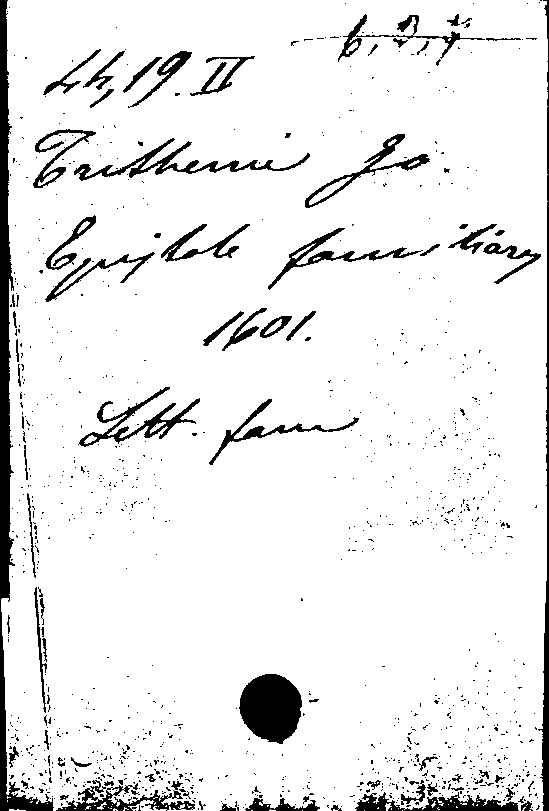 6, 3, 4
44,19. II
Trithemii Jo.
Epistole familiares
1601.
Lett. fam